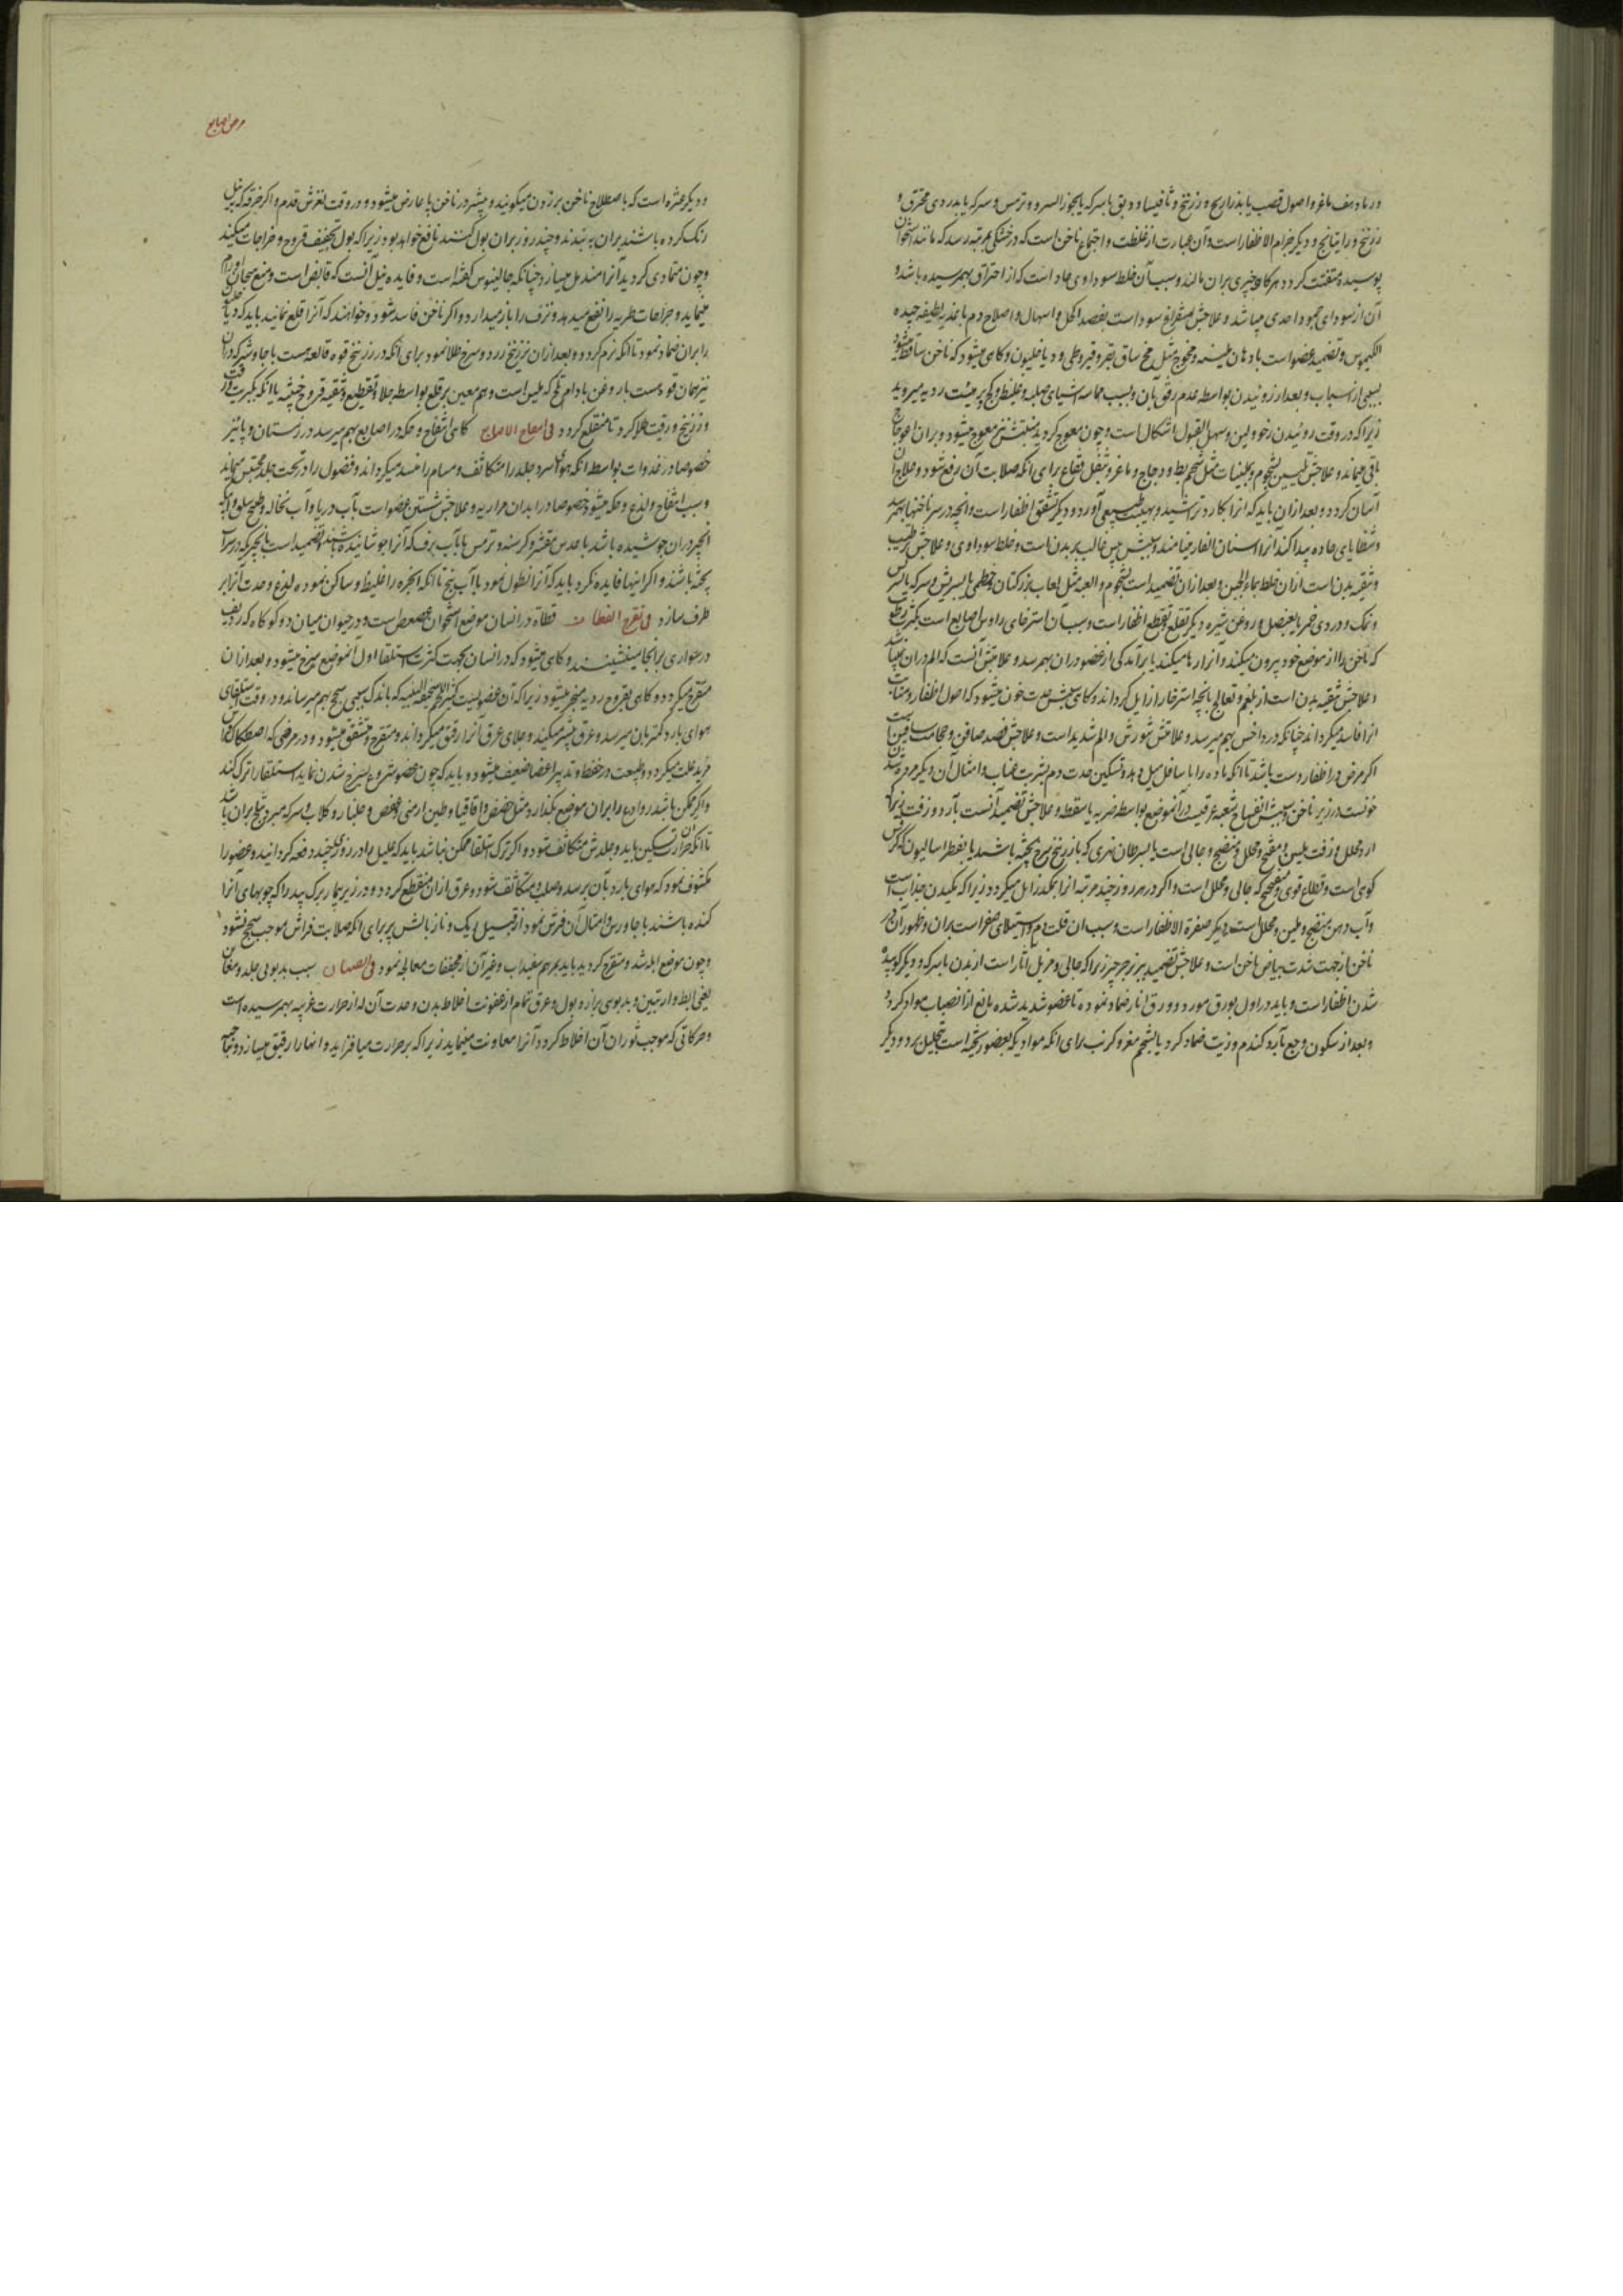 در باد هف ماغز و اصول قصب یا بذراریح و زرنیخ و ثافیسا و دبق با سرکه یا بجوز السرو و ترمس و سرکه یا بدردی محترق و
زرنیخ و راتیانج و دیگر جذام الاظفار است و آن عبارت از غلظت و اجتماع ناخن است که در خشکی بمرتبه رسد که مانند استخوان
پوسیده متفتت کردد هرکاه چیزی بران مالند و سبب آن خلط سوداوی حاد است که از احتراق بهم رسیده باشد و
آن از سودای جمود احدی میباشد و علاجش استفراغ سودا است بفصد اکحل و اسهال و اصلاح دم باغذیه لطیفه جیده
الکیموس و تضمید عضو است بادهان ملینه و مخوخ مثل مخ ساق بقر و قیروطی و دیاخلیون و کاهی میشود که ناخن ساقط میشود
بسببی از اسباب و بعد از روئیدن بواسطه عدم رفق بآن و بسبب مماسه اشیای صلبه غلیظ و کج بر هیئت ردیه میروید
زیرا که در وقت روئیدن رخو و لین و سهل القبول اشکال است و چون معوج کردید منبتش نیز معوج میشود و بران اعوجاج
باقی میماند و علاجش تلیین بشحوم و ملینات مثل شحم بط و دجاج و ماغز و بثفل فقاع برای آنکه صلابت آن رفع شود و علاج آن
آسان کردد و بعد ازان باید که انرا بکارد تراشیده بهیئت طبیعی آورد و دیگر تشقق اظفار است و انچه در سر ناخنها بهم رسد
و شظایای حاده پیدا کند آنرا اسنان الفار مینامند و سببش یبس غالب بر بدن است و خلط سوداوی و علاجش ترطیب
و تنقیه بدن است ازان خلط بماء الجبن و بعد ازان تضمید است بشحوم و العبه مثل لعاب بزرکتان و خطمی یا بسریش و سرکه یا بسرکس
و نمک و دردی خمر یا بعنصل و روغن شیره و دیگر تقلع و تقطع اظفار است و سبب آن استرخای راوس اصابع است بکثرت رطوبت
که ناخن را از موضع خود بیرون میکند و آنرا رها میکند یا برآمدکی از عضو دران بهم رسد و علامتش آنست که الم دران نمیباشد
و علاجش تنقیه بدن است از بلغم و تعالج بانچه استرخا را زایل کرداند و کاهی سببش حدت خون میشود که اصول اظفار و منابت
انرا فاسد میکرداند چنانکه در داخس بهم میرسد و علامتش شورش و الم شدید است و علاجش فصد صافن و حجامت ساقین است
اکر مرض در اظفار دست باشد تا آنکه ماده را با سافل میل دهد و تسکین حدت دم بشربت عناب و امثال آن و دیگر مرده شدن
خونست در زیر ناخن و سببش انفساخ شعبه عرقیست در آنموضع بواسطه ضربه یا سقطه و علاجش تضمید آنست بآرد و زفت زیرا که
آرد محلل و زفت ملین و مفتح و محلل و منضج و جالی است یا بسرطان نهری که با زرنیخ سرخ پخته باشند یا بفطراسالیون که کرفس
کوهی است و تطلع قوی و مفتحی که جالی و محلل است و اکر در هر روز چند مرتبه انرا بمکند زایل میکردد زیرا که مکیدن جذاب است
و آب دهن منضج و ملین و محلل است و دیگر صفرة الاظفار است و سبب ان قلت دم و استیلای صفرا است بران و ظهور آن در
ناخن از جهت شدت بیاض ناخن است و علاجش تضمید ببزر جرجیر زیرا که جالی و مزیل اثار است از بدن با سرکه و دیگر کوبیده
شدن اظفار است و باید در اول بورق مورد و ورق انار ضماد نموده تا عضو شدید شده مانع از انصباب مواد کردد
و بعد از سکون وجع بآرد کندم و زیت ضماد کرد یا بشحم معز و کرنب برای انکه موادیکه بعضو ریخته است بتحلیل برد و دیگر
مرض اصابع
و دیگر عثره است که باصطلاح ناخن بر زدن میکویند و بیشتر در ناخن پا عارض میشود در وقت لغزش قدم و اکر خرقه که بنیل
رنک کرده باشند بران به بندند و چند روز بران بول کنند نافع خواهد بود زیرا که بول تجفیف قروح و خراجات میکند
و چون متمادی کردید آنرا مندمل میسازد چنانکه جالینوس کفته است و فایده نیل آنست که قابض است و منع هیجان اورام
مینماید و جراحات طریه را نفع میدهد و نزف را باز میدارد و اکر ناخن فاسد شود و خواهند که آنرا قلع نمایند باید که دیاخلیون
را بران ضماد نمود تا آنکه نرم کردد و بعد ازان زرنیخ زرد و سرخ طلا نمود برای آنکه در زرنیخ قوه قالعه هست با جاوشیر که دران
نیز همان قوه هست با روغن بادام تلخ که ملین است و هم معین بر قلع بواسطه جلا و تقطیع و تنقیه قروح خبیثه یا انکه بکبریت و زفت
و زرنیخ و زفت طلا کرد تا منقلع کردد في انتفاخ الاصابع کاهی انتفاخ و حکه در اصابع بهم میرسد در زمستان و پائیز
خصوصا در غدوات بواسطه انکه هوای سرد جلد را متکاثف و مسام را منسد میکرداند و فضول را در تحت جلد محتبس مینماید
و سبب انتفاخ و لذع و حکه میشود خصوصا در ابدان حراریه و علاجش شستن عضو است بآب دریا و آب نخاله و طبیخ سلق و بانکه
انجیر دران جوشیده باشد یا عدس مقشر و کرسنه و ترمس یا بآب برف که آنرا جوشانیده باشند تضمید است بانجیر که در سرکه
پخته باشند و اکر اینها فایده نکرد باید که آنرا نطول نمود بآب یخ تا انکه ابخره را غلیظ و ساکن نموده لذع و حدت آنرا بر
طرف سازد في تقرح القطاة قطاة در انسان موضع استخوان عصعص است و در حیوان میان دو کوکاه که ردیف
در سواری برانجا مینشیند و کاهی میشود که در انسان بجهت کثرت استلقا اول آنموضع سرخ میشود و بعد ازان
متقرح میکردد و کاهی بقروح ردیه منجر میشود زیرا که آن عضویست کثیر اللحم سخیفة البنیه که باندک سببی سحج بهم میرساند و در وقت استلقای
هوای بارد کمتر بان میرسد و عرق بیشتر میکند و حدای عرق آنرا رقیق میکرداند و متقرح و متشقق میشود و در مرضی که اصطکاک آن
مزید علت میکردد و طبیعت در حفظ و تدبیر اعضا ضعیف میشود و باید که چون عضو شروع بسرخ شدن نماید استلقا را ترک کند
و اکر ممکن باشد روادع را بران موضع بکذارد مثل حضض و اقاقیا و طین ارمنی و عفص و جلنار و کلاب و سرکه مبرد بثلج بران باشد
تا آنکه حرارتش تسکین یابد و جلدش متکاثف شود و اکر ترک استلقا ممکن نباشد باید که علیل را در روزی چند دفعه کردانید و عضو را
مکشوف نمود که هوای بارد بآن برسد و صلب و متکاثف شود و عرق ازان منقطع کردد و در زیر بیمار برک بید را که چوبهای آنرا
کنده باشند با جاورس و امثال آن فرش نمود از قبیل ریک و ناز بالش پر برای انکه صلابت فراش موجب سحج نشود
و چون موضع ابله شد و متقرح کردید باید بمرهم سفیداب و غیر آن از مجففات معالجه نمود في الصنان سبب بدبوئی جلد و مغابن
یعنی ابط و اربتین و بدبوئی براز و بول و عرق تمام از عفونت اخلاط بدن و حدت آن از حرارت غریبه بهم رسیده است
و حرکاتی که موجب ثوران آن اخلاط کردد آنرا معاونت مینماید زیرا که بر حرارت میافزاید و انها را رقیق میسازد و بجانب